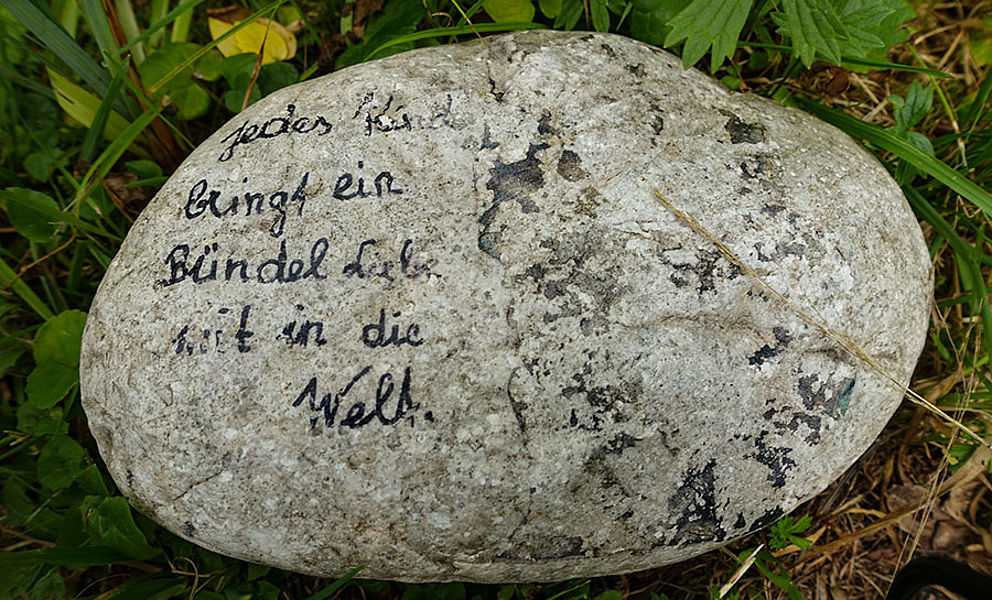 jedes Kind
bringt ein
Bündel Liebe
mit in die
Welt.